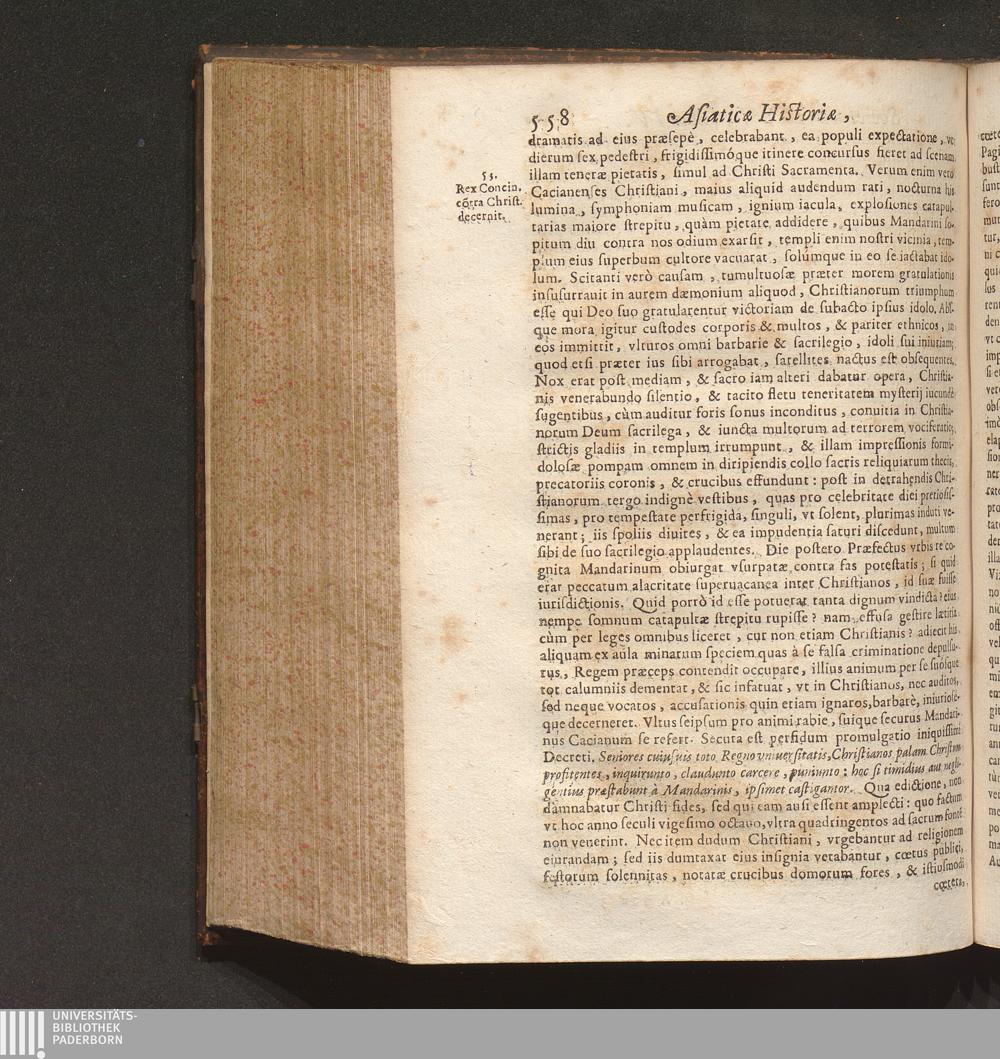 558 Asiaticæ Historiæ,
dramatis ad eius præsepè, celebrabant, ea populi expectatione, vt
dierum sex pedestri, frigidissimóque itinere concursus fieret ad scenam
illam teneræ pietatis, simul ad Christi Sacramenta. Verum enim verò
53.
Rex Concin.
cōtra Christ.
decernit.
Cacianenses Christiani, maius aliquid audendum rati, nocturna his
lumina, symphoniam musicam, ignium iacula, explosiones catapul-
tarias maiore strepitu, quàm pietate addidere, quibus Mandarini so-
pitum diu contra nos odium exarsit, templi enim nostri vicinia, tem-
plum eius superbum cultore vacuarat, solúmque in eo se iactabat ido-
lum. Scitanti verò causam, tumultuosæ præter morem gratulationis
insusurrauit in aurem dæmonium aliquod, Christianorum triumphum
esse qui Deo suo gratularentur victoriam de subacto ipsius idolo. Abs-
que mora igitur custodes corporis & multos, & pariter ethnicos, in
eos immittit, vlturos omni barbarie & sacrilegio, idoli sui iniuriam;
quod etsi præter ius sibi arrogabat, satellites nactus est obsequentes.
Nox erat post mediam, & sacro iam alteri dabatur opera, Christia-
nis venerabundo silentio, & tacito fletu teneritatem mysterij iucundè
sugentibus, cùm auditur foris sonus inconditus, conuitia in Christia-
norum Deum sacrilega, & iuncta multorum ad terrorem vociferatio;
strictis gladiis in templum irrumpunt, & illam impressionis formi-
dolosæ pompam omnem in diripiendis collo sacris reliquiarum thecis,
precatoriis coronis, & crucibus effundunt: post in detrahendis Chri-
stianorum tergo indignè vestibus, quas pro celebritate diei pretiosis-
simas, pro tempestate perfrigida, singuli, vt solent, plurimas induti ve-
nerant; iis spoliis diuites, & ea impudentia saturi discedunt, multum
sibi de suo sacrilegio applaudentes. Die postero Præfectus vrbis re co-
gnita Mandarinum obiurgat vsurpatæ contra fas potestatis; si quid
erat peccatum alacritate superuacanea inter Christianos, id suæ fuisse
iurisdictionis. Quid porrò id esse potuerat tanta dignum vindicta? eius
nempe somnum catapultæ strepitu rupisse? nam effusa gestire lætitia
cùm per leges omnibus liceret, cur non etiam Christianis? adiecit his
aliquam ex aula minarum speciem quas à se falsa criminatione depulsu-
rus, Regem præceps contendit occupare, illius animum per se suósque
tot calumniis dementat, & sic infatuat, vt in Christianos, nec auditos,
sed neque vocatos, accusationis quin etiam ignaros, barbarè, iniuriosè-
que decerneret. Vltus seipsum pro animi rabie, suique securus Mandari-
nus Cacianum se refert. Secuta est perfidum promulgatio iniquissimi
Decreti. Seniores cuiusuis toto Regno vniuersitatis, Christianos palam Christum
profitentes, inquirunto, claudunto carcere, puniunto: hoc si timidius aut negli-
gentius præstabunt à Mandarinis, ipsimet castigantor. Qua edictione, non
damnabatur Christi fides, sed qui eam ausi essent amplecti: quo factum
vt hoc anno seculi vigesimo octauo, vltra quadringentos ad sacrum fonté
non venerint. Nec item dudum Christiani, vrgebantur ad religionem
eiurandam; sed iis dumtaxat eius insignia vetabantur, cœtus publici,
festorum solennitas, notatæ crucibus domorum fores, & istiusmodi
cœtera,
UNIVERSITÄTS-
BIBLIOTHEK
PADERBORN